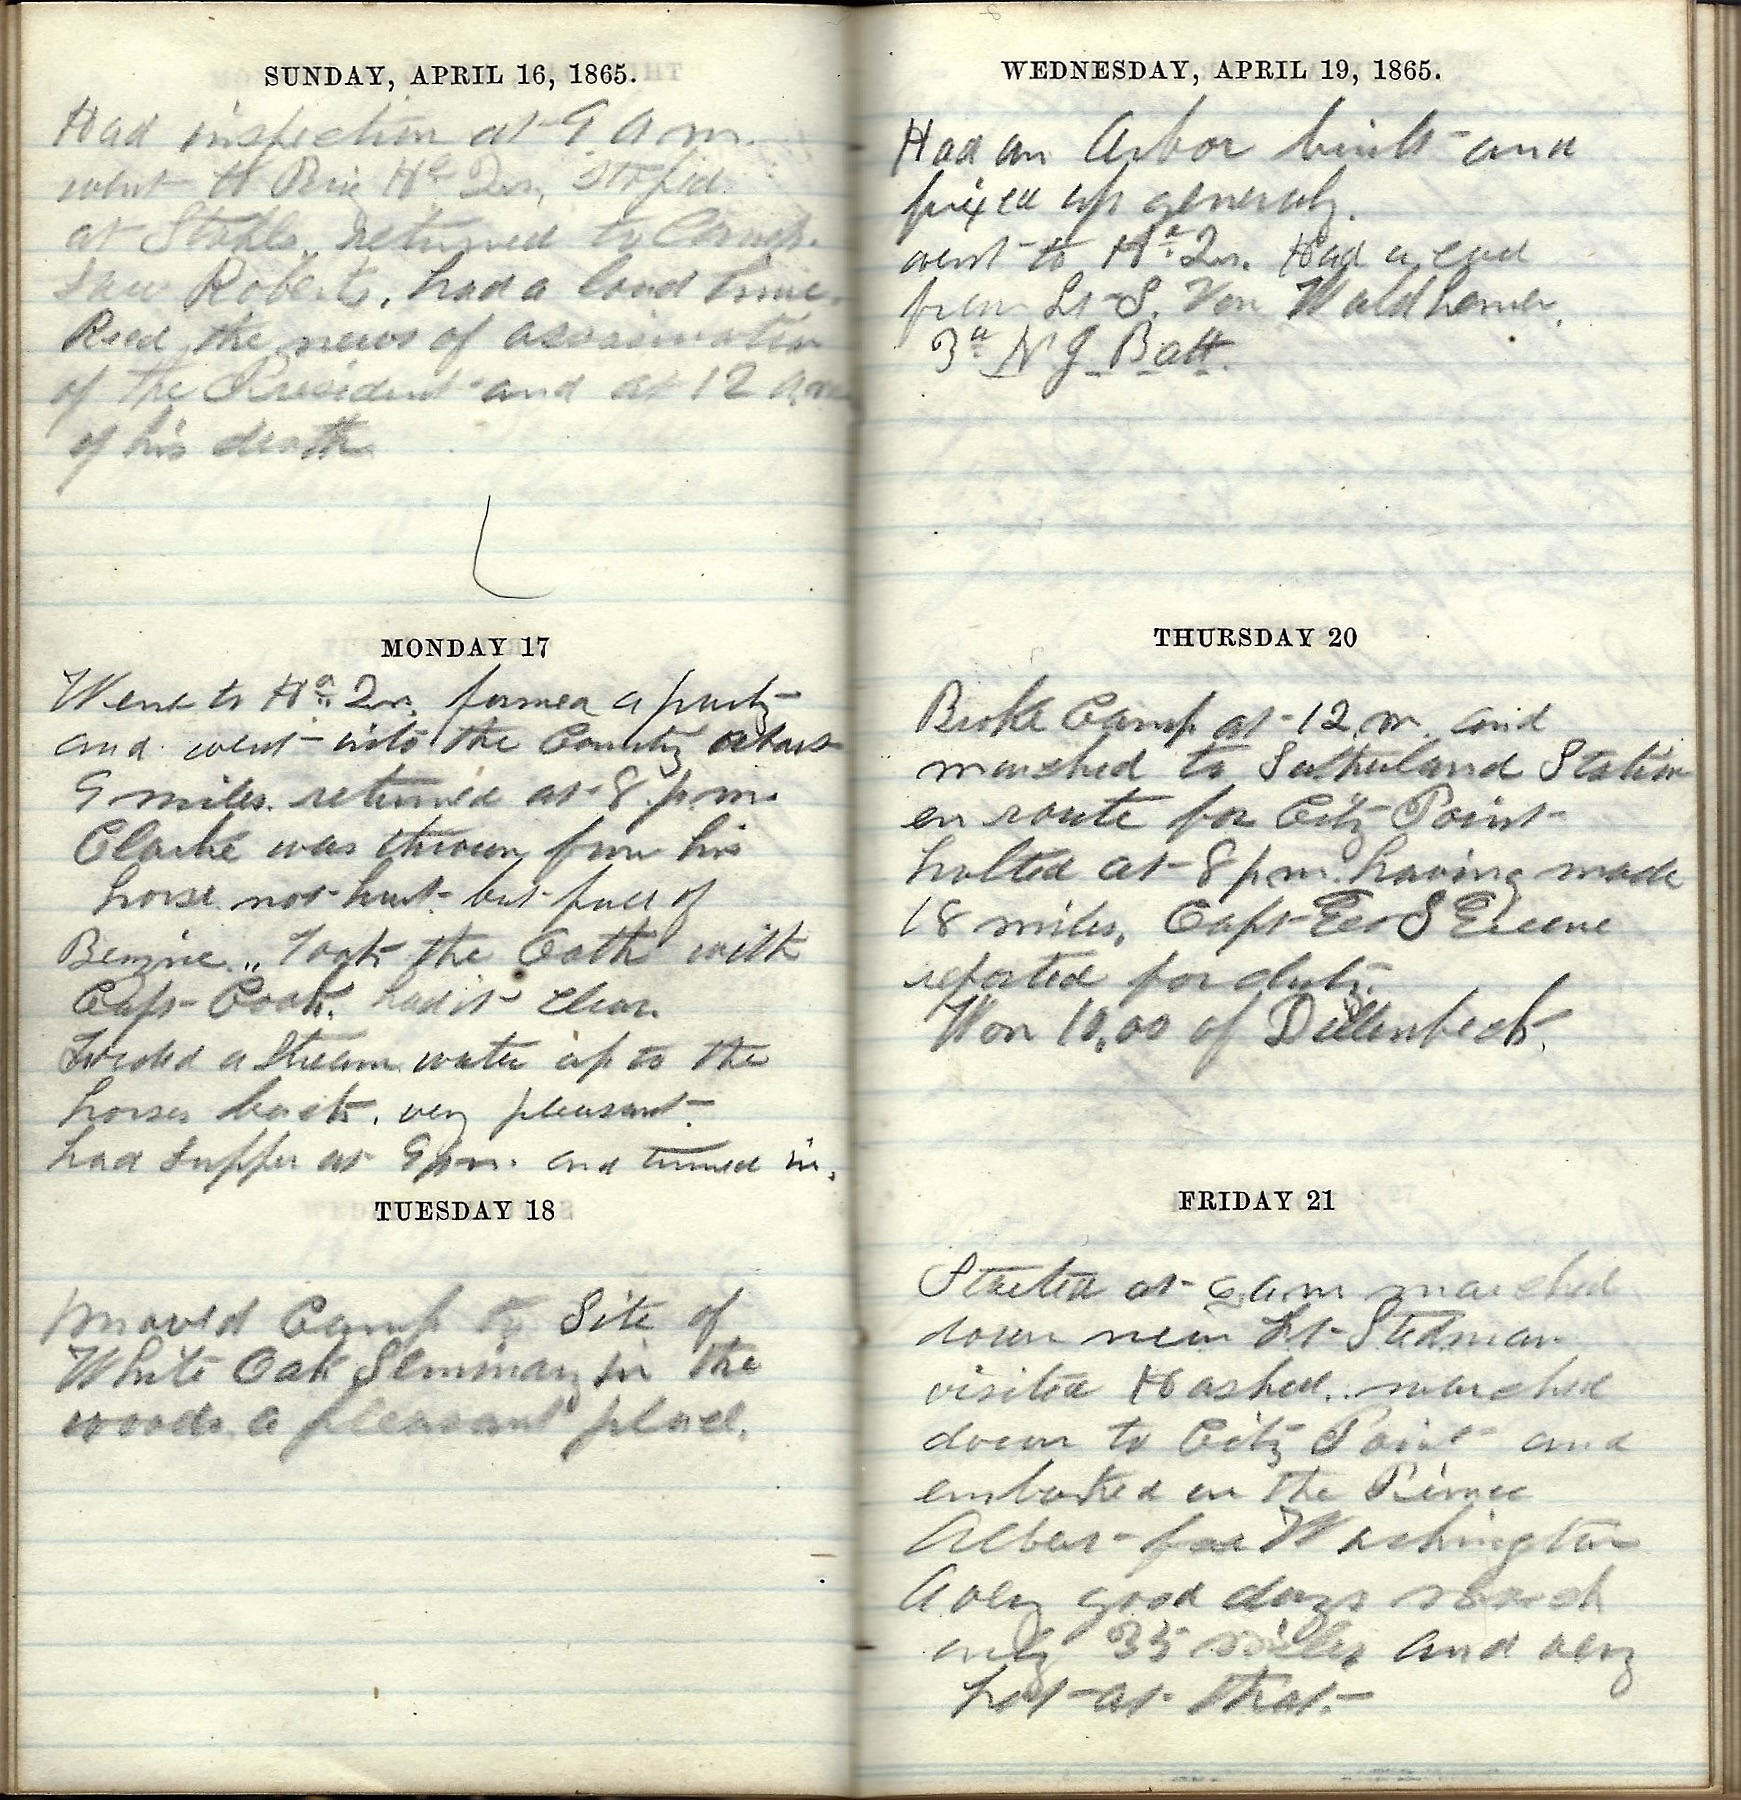 SUNDAY, APRIL 16, 1865.
Had inspection at 9 a m.
went to Brig Hd Qrs, Stoped
at Stables, returned to Camp.
Saw Roberts, had a loud time.
Recd the news of assasination
of the President and at 12 a.m
of his death
MONDAY 17
Went to Hd Qrs. formed a party
and went into the County about
9 miles. returned at 8 p.m.
Clarke was thrown from his
horse not hurt but full of
Benzine.,, Took the Oath with
Capt Cook. had it clear.
Forded a Stream water up to the
horses back. very pleasant.
had supper at 9 pm. and turned in.
TUESDAY 18
Moved Camp to Site of
White Oak Seminary in the
woods. a pleasant place.
WEDNESDAY, APRIL 19, 1865.
Had an Arbor built and
fixed up generaly.
went to Hd Qrs. Had a
from Lt S. Von
3d N J Batt.
THURSDAY 20
Broke Camp at 12 m. and
marched to Sutherland Station
en route for City Point
halted at 8 p.m. having made
18 miles. Capt Geo S Greene
reported for duty.
Won 10.00 of Dillenbeck.
FRIDAY 21
Started at 6 a m marched
down near Ft Stedman
visited marched
down to City Point and
embarked on the Prince
Albert for Washington
A very good days march
only 35 miles and very
hot at that.